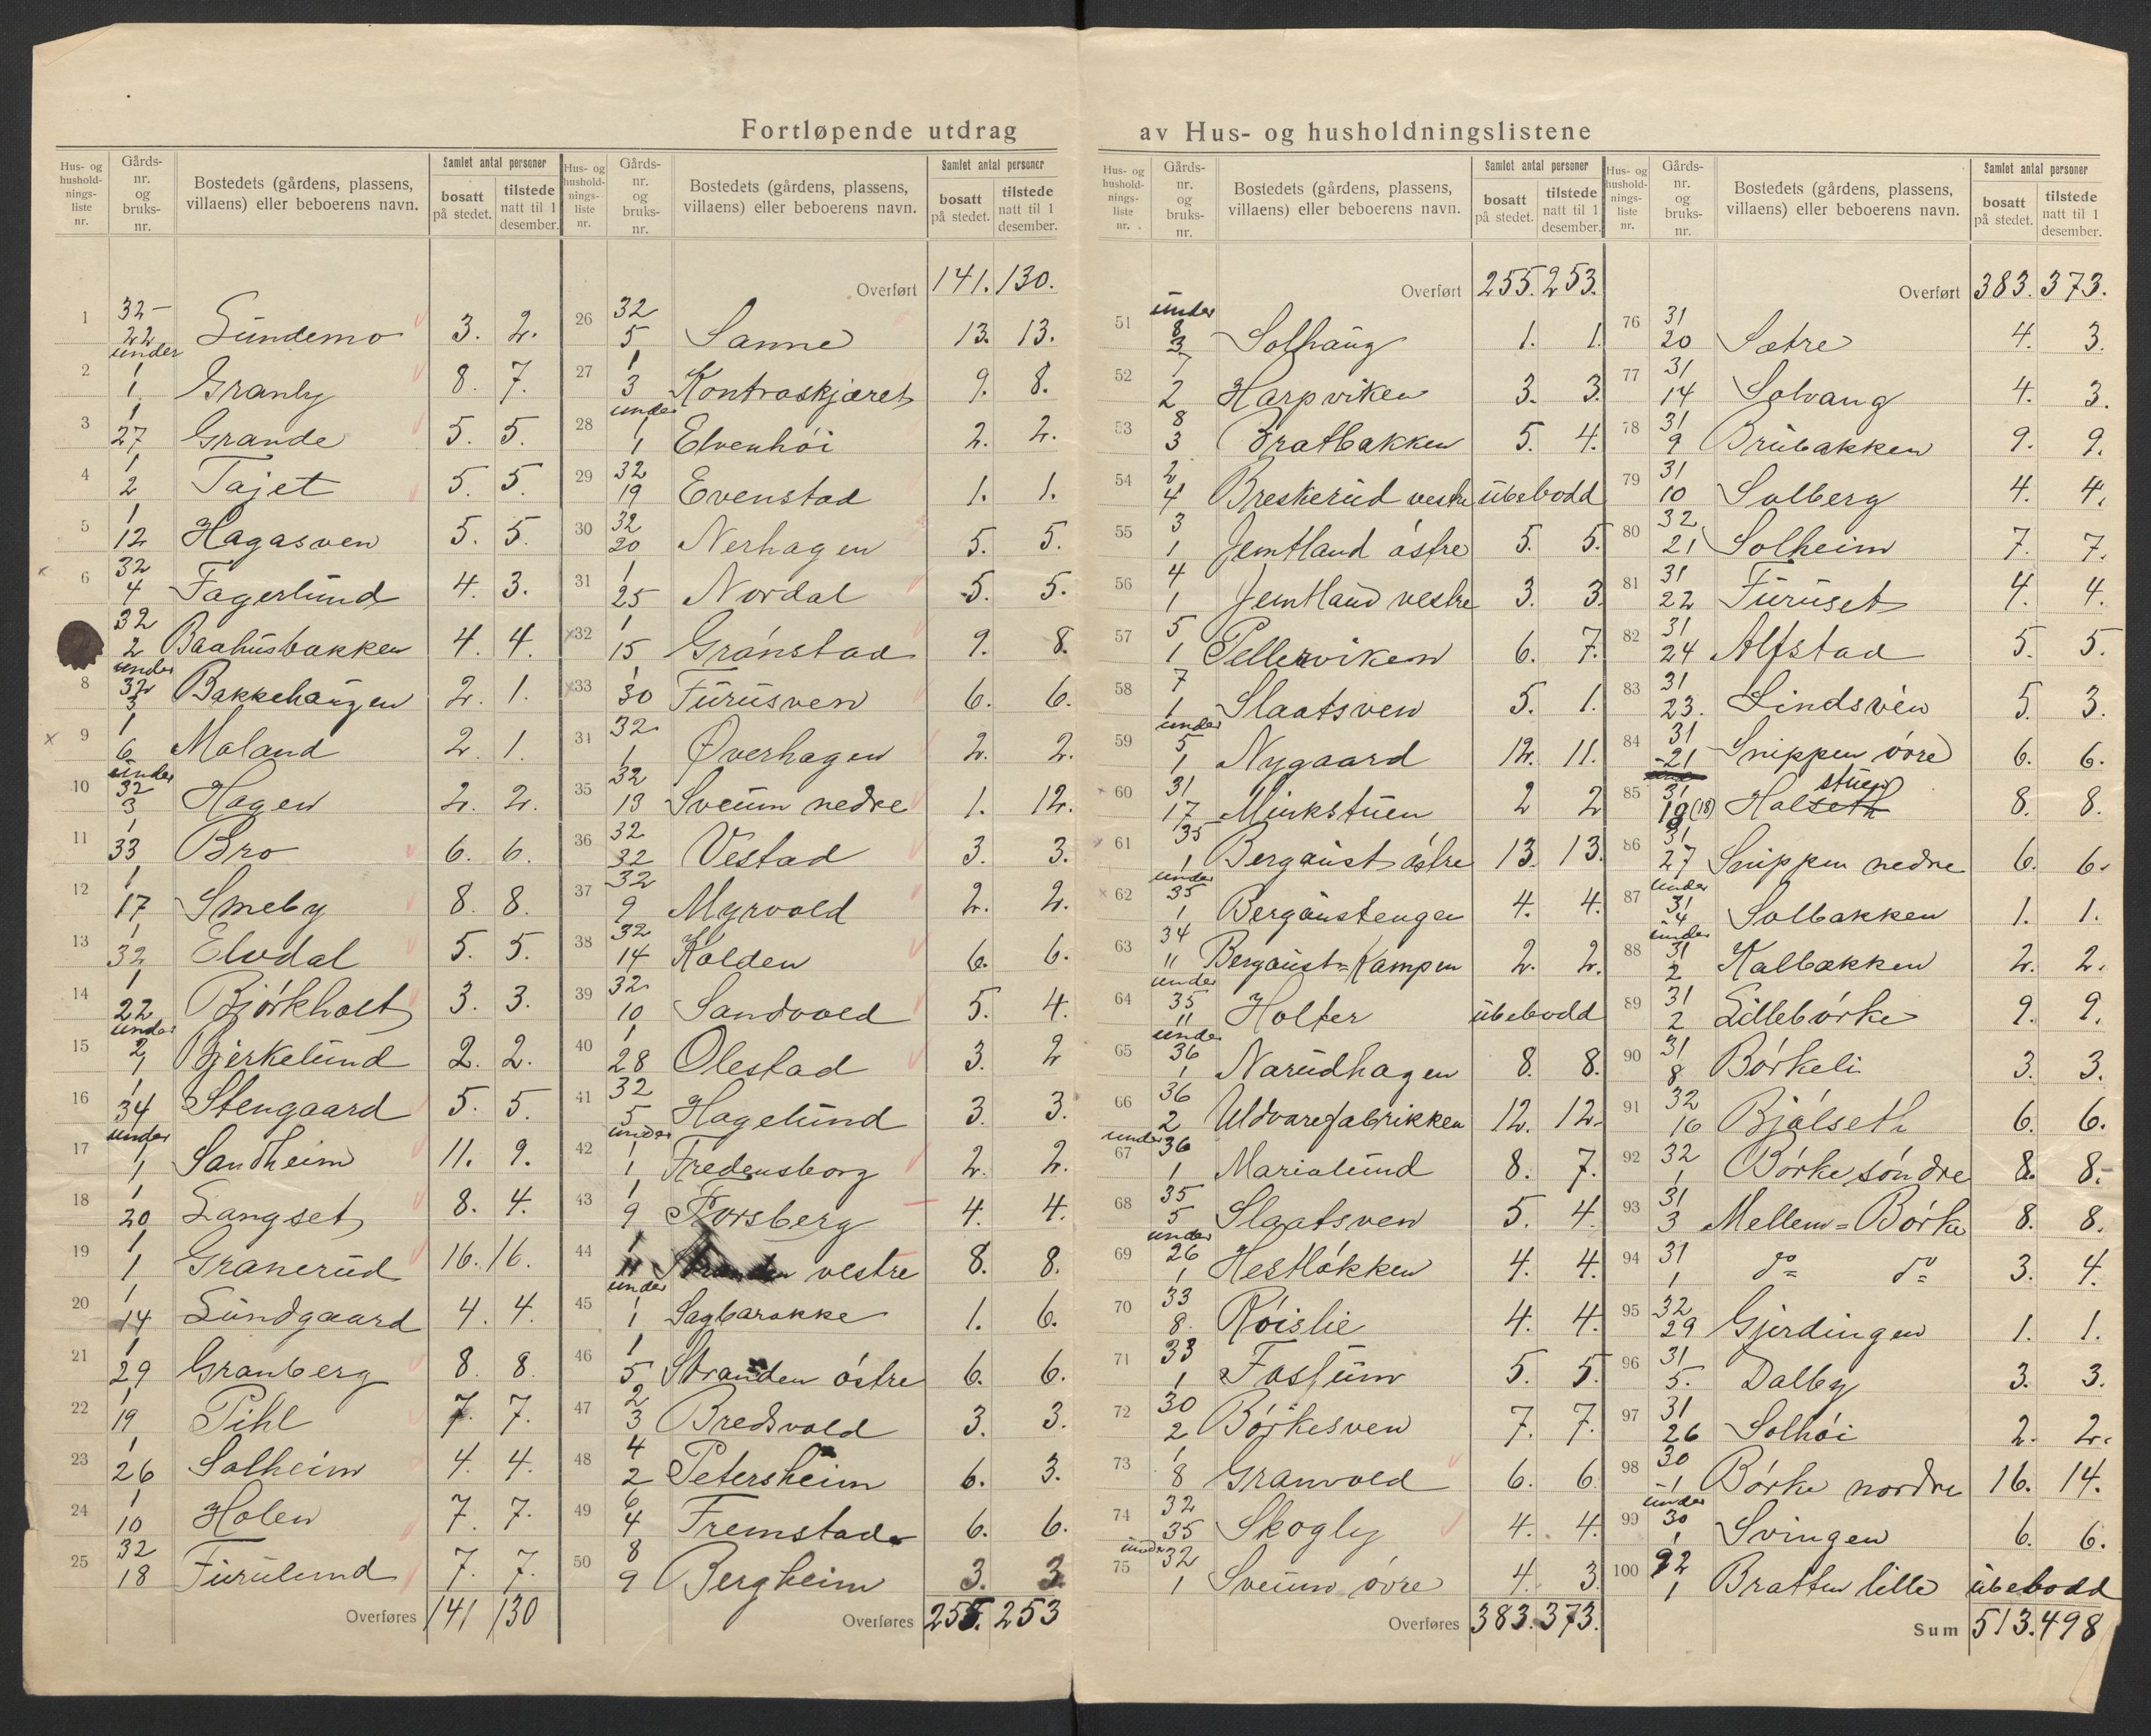 Fortløpende utdrag av Hus- og husholdningslistene
Hus- og husholdnings-liste nr. | Gårds-nr. og bruks-nr. | Bostedets (gårdens, plassens, villaens) eller beboerens navn. | Samlet antal personer bosatt på stedet. | tilstede natt til 1 desember.
1 | 32- 22 | Lundemo | 3. | 2.
2 | under 1 1 | Granly | 8. | 7.
3 | 1 27 | Grande | 5. | 5.
4 | 1 2 | Tajet | 5. | 5.
5 | 1 12 | Hagasven | 5. | 5.
6 | 32 4 | Fagerlund | 4. | 3.
32 2 | Baahusbakken | 4. | 4.
8 | under 32 3 | Bakkehaugen | 2. | 1.
9 | 1 6 | Moland | 2. | 1.
10 | under 32 3 | Hagen | 2. | 2.
11 | 1 33 | Bro | 6. | 6.
12 | 1 17 | Smeby | 8. | 8.
13 | 1 32 | Elvdal | 5. | 5.
14 | 1 22 | Bjørkholt | 3. | 3.
15 | under 2 1 | Bjerkelund | 2. | 2.
16 | 1 34 | Stengaard | 5. | 5.
17 | under 1 1 | Sandheim | 11. | 9.
18 | 1 20 | Langset | 8. | 4.
19 | 1 1 | Granerud | 16. | 16.
20 | 1 14 | Lundgaard | 4. | 4.
21 | 1 29 | Granberg | 8. | 8.
22 | 1 19 | Pihl | 7. | 7.
23 | 1 26 | Solheim | 4. | 4.
24 | 1 10 | Holen | 7. | 7.
25 | 32 18 | Furulund | 7. | 7.
Overføres | 141 | 130
Hus- og husholdnings-liste nr. | Gårds-nr. og bruks-nr. | Bostedets (gårdens, plassens, villaens) eller beboerens navn. | Samlet antal personer bosatt på stedet. | tilstede natt til 1 desember.
Overført | 141. | 130.
26 | 32 5 | Sanne | 13. | 13.
27 | 1 3 | Kontraskjæret | 9. | 8.
28 | under 1 1 | Elvenhøi | 2. | 2.
29 | 32 19 | Evenstad | 1. | 1.
30 | 32 20 | Nerhagen | 5. | 5.
31 | 1 25 | Nordal | 5. | 5.
32 | 1 15 | Grønstad | 9. | 8.
33 | 1 30 | Furusven | 6. | 6.
34 | 32 1 | Øverhagen | 2. | 2.
35 | 32 13 | Sveum nedre | 1. | 12.
36 | 32 32 | Vestad | 3. | 3.
37 | 32 9 | Myrvold | 2. | 2.
38 | 32 14 | Kolden | 6. | 6.
39 | 32 10 | Sandvold | 5. | 4.
40 | 1 28 | Olestad | 3. | 2
41 | 32 5 | Hagelund | 3. | 3.
42 | under 1 1 | Fredensborg | 2. | 2.
43 | 1 9 | Forsberg | 4. | 4.
44 | 1 11 | vestre | 8. | 8.
45 | under 1 1 | Sagbarakke | 1. | 6.
46 | 1 5 | Stranden østre | 6. | 6.
47 | 2 3 | Bredsvold | 3. | 3.
48 | 4 2 | Petersheim | 6. | 3.
49 | 6 4 | Fremstad | 6. | 6.
50 | 8 9 | Bergheim | 3. | 3
Overføres | 255. | 253
Hus- og husholdnings-liste nr. | Gårds-nr. og bruks-nr. | Bostedets (gårdens, plassens, villaens) eller beboerens navn. | Samlet antal personer bosatt på stedet. | tilstede natt til 1 desember.
Overført | 255. | 253.
51 | under 8 3 | Solhaug | 1. | 1.
52 | 7 2 | Harpviken | 3. | 3.
53 | 8 3 | Bratbakken | 5. | 4.
54 | 2 4 | Breskerud vestre | ubebodd
55 | 3 1 | Jemtland østre | 5. | 5.
56 | 4 1 | Jemtland vestre | 3. | 3.
57 | 5 1 | Pellerviken | 6. | 7.
58 | 7 1 | Slaatsven | 5. | 1.
59 | under 5 1 | Nygaard | 12. | 11.
60 | 31 17 | Minkstuen | 2 | 2
61 | 35 1 | Bergaust østre | 13. | 13.
62 | under 35 1 | Bergaustengen | 4. | 4.
63 | 34 11 | Bergaust=Kampen | 2. | 2.
64 | under 35 11 | Holter | ubebodd
65 | under 36 1 | Narudhagen | 8. | 8.
66 | 36 2 | Uldvarefabrikken | 12. | 12.
67 | under 36 1 | Marialund | 8. | 7.
68 | 35 5 | Slaatsven | 5. | 4.
69 | under 26 1 | Hestløkken | 4. | 4.
70 | 33 8. | Røislie | 4. | 4.
71 | 33 1 | Fossum | 5. | 5.
72 | 30 2 | Børkesven | 7. | 7.
73 | 1 8 | Granvold | 6. | 6
74 | 32 35 | Skogly | 4. | 4.
75 | under 32 1 | Sveum øvre | 4. | 3.
Overføres | 383. | 373.
Hus- og husholdnings-liste nr. | Gårds-nr. og bruks-nr. | Bostedets (gårdens, plassens, villaens) eller beboerens navn. | Samlet antal personer bosatt på stedet. | tilstede natt til 1 desember.
Overført | 383. | 373.
76 | 31 20 | Sætre | 4. | 3.
77 | 31 14 | Solvang | 4. | 3.
78 | 31 9 | Brubakken | 9. | 9.
79 | 31 10 | Solberg | 4. | 4.
80 | 32 21 | Solheim | 7. | 7.
81 | 31 22 | Furuset | 4. | 4.
82 | 31 24 | Alfstad | 5. | 5.
83 | 31 23. | Lindsven | 5. | 3.
84 | 31 21 | Snippen øvre | 6. | 6.
85 | 31 19 (18) | Holseth stuen | 8. | 8.
86 | 31 27 | Snippen nedre | 6. | 6.
87 | under 31 4 | Solbakken | 1. | 1.
88 | under 31 2 | Kalbækken | 2. | 2.
89 | 31 2 | Lillebørke | 9. | 9.
90 | 31 8 | Børkeli | 3. | 3.
91 | 32 16 | Bjølseth | 6. | 6.
92 | 32 1 | Børke søndre | 8. | 8.
93 | 31 3 | Mellem=Børke | 8. | 8.
94 | 31 1 | do do | 3. | 4.
95 | 32 29 | Gjerdingen | 1. | 1.
96 | 31 5. | Dalby | 3. | 3.
97 | 31 26 | Solhøi | 2. | 2.
98 | 30 1 | Børke nordre | 16. | 14.
99 | under 30 1 | Svingen | 6. | 6.
100 | 92 1 | Bratten lille | ubebodd
Sum | 513. | 498